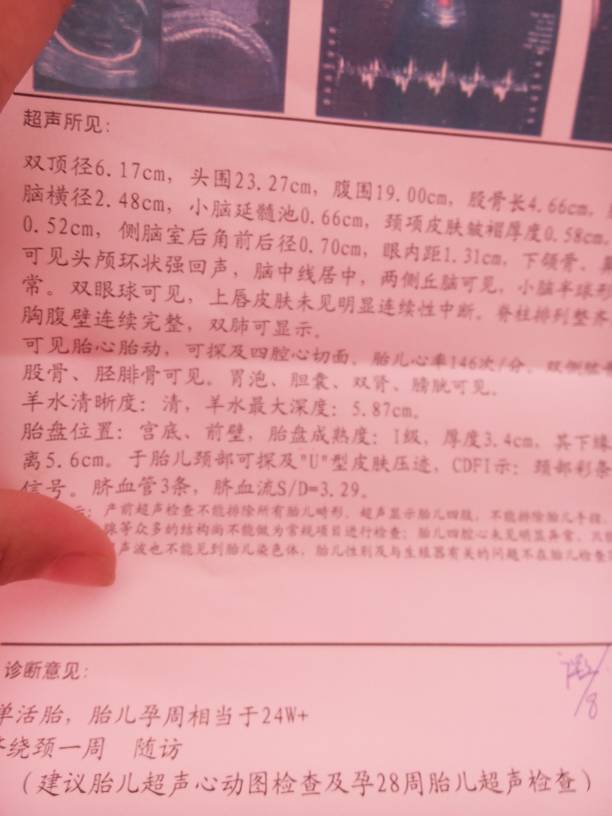 超声所见:
双顶径6.17cm, 头围23.27cm, 腹围19.00cm, 股骨长4.66cm,
脑横径2.48cm, 小脑延髓池0.66cm, 颈项皮肤皱褶厚度0.58cm
0.52cm, 侧脑室后角前后径0.70cm, 眼内距1.31cm, 下颌骨、
可见头颅环状强回声, 脑中线居中, 两侧丘脑可见, 小脑半球形
常。双眼球可见, 上唇皮肤未见明显连续性中断。脊柱排列整齐
胸腹壁连续完整, 双肺可显示。
可见胎心胎动, 可探及四腔心切面, 胎儿心率146次/分, 双侧
股骨、胫腓骨可见。胃泡、胆囊、双肾、膀胱可见。
羊水清晰度: 清, 羊水最大深度: 5.87cm。
胎盘位置: 宫底、前壁, 胎盘成熟度: I级, 厚度3.4cm, 其下缘
离5.6cm。于胎儿颈部可探及"U"型皮肤压迹, CDFI示: 颈部彩条
信号。脐血管3条, 脐血流S/D=3.29。
示: 产前超声检查不能排除所有胎儿畸形, 超声显示胎儿四肢, 不能排除胎儿手指、
腺等众多的结构尚不能做为常规项目进行检查; 胎儿四腔心未见明显异常, 只
声波也不能见到胎儿染色体, 胎儿性别及与生殖器有关的问题不在胎儿检查
诊断意见:
单活胎, 胎儿孕周相当于24W+
绕颈一周 随访
(建议胎儿超声心动图检查及孕28周胎儿超声检查)